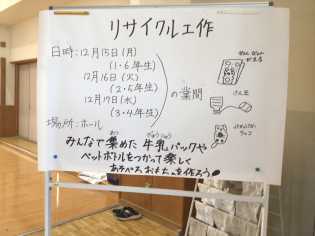 リサイクル工作
日時:12月15日(月)
(1・6年生)
12月16日(火)
(2・5年生)
の業間
12月17日(水)
(3・4年生)
場所:ホール
けん玉
みんなで集めた牛乳パックや
あつ
ぎゅうにゅう
ペットボトルをつかって楽しく
あそべるおもちゃを作ろう